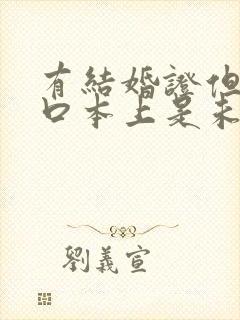 有結婚證但
口本上是未
劉義宣